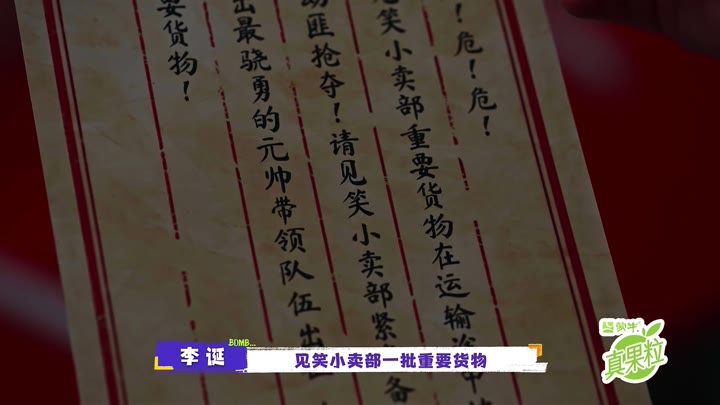 ！危！危！
见笑小卖部重要货物在运输
匪抢夺！请见笑小卖部紧
备
出最骁勇的元帅带领队伍出
要货物！
李诞
BOMB...
见笑小卖部一批重要货物
蒙牛
真果粒